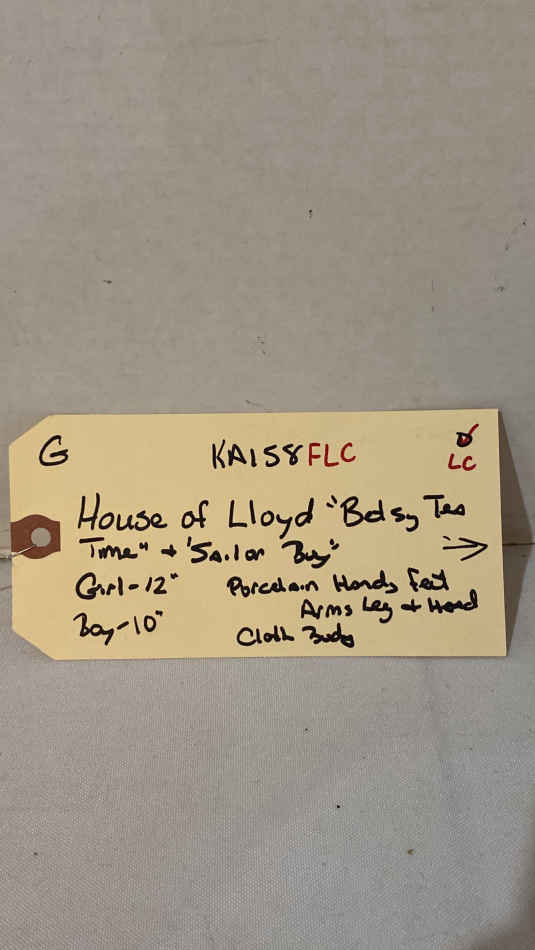 G KA158FLC
LC
House of Lloyd "Betsy Tea
Time" + "Sailor Boy"
Girl-12" Porcelain Hands Feet
Arms Leg + Head
Boy-10"
Cloth Body